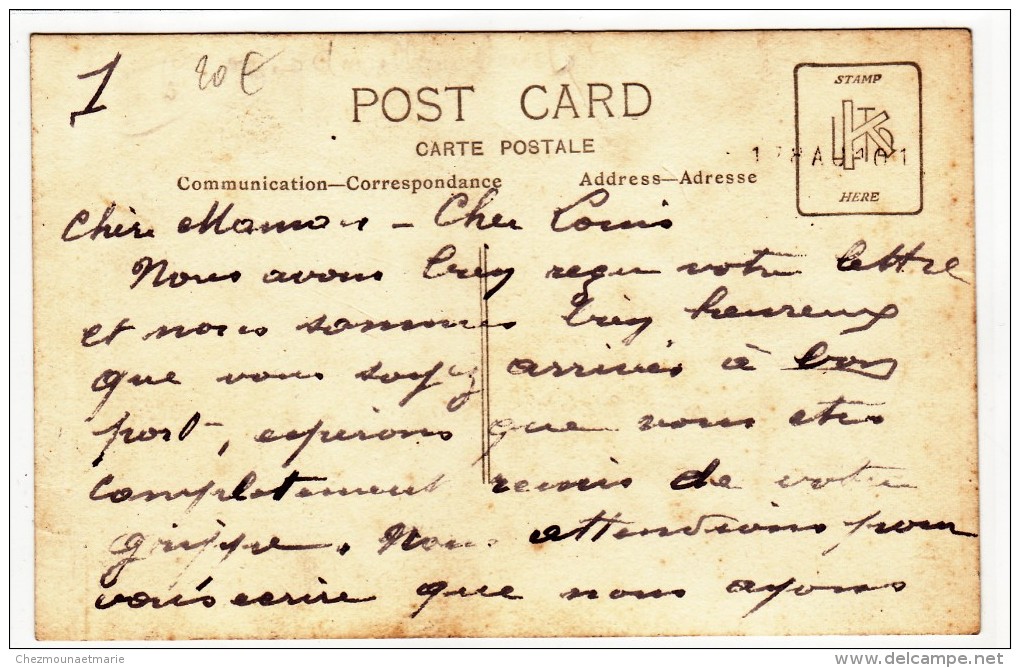 1
20€
POST CARD
CARTE POSTALE
Communication—Correspondance
Address—Adresse
STAMP
HERE
Chère Maman - Cher Louis
Nous avons bien reçu votre lettre
et nous sommes bien heureux
que vous soyez arrivés à bon
port, espérons que vous etes
completement remis de votre
grippe. Nous attendions pour
vous ecrire que nous ayons
Chezmounaetmarie
delcampe.net